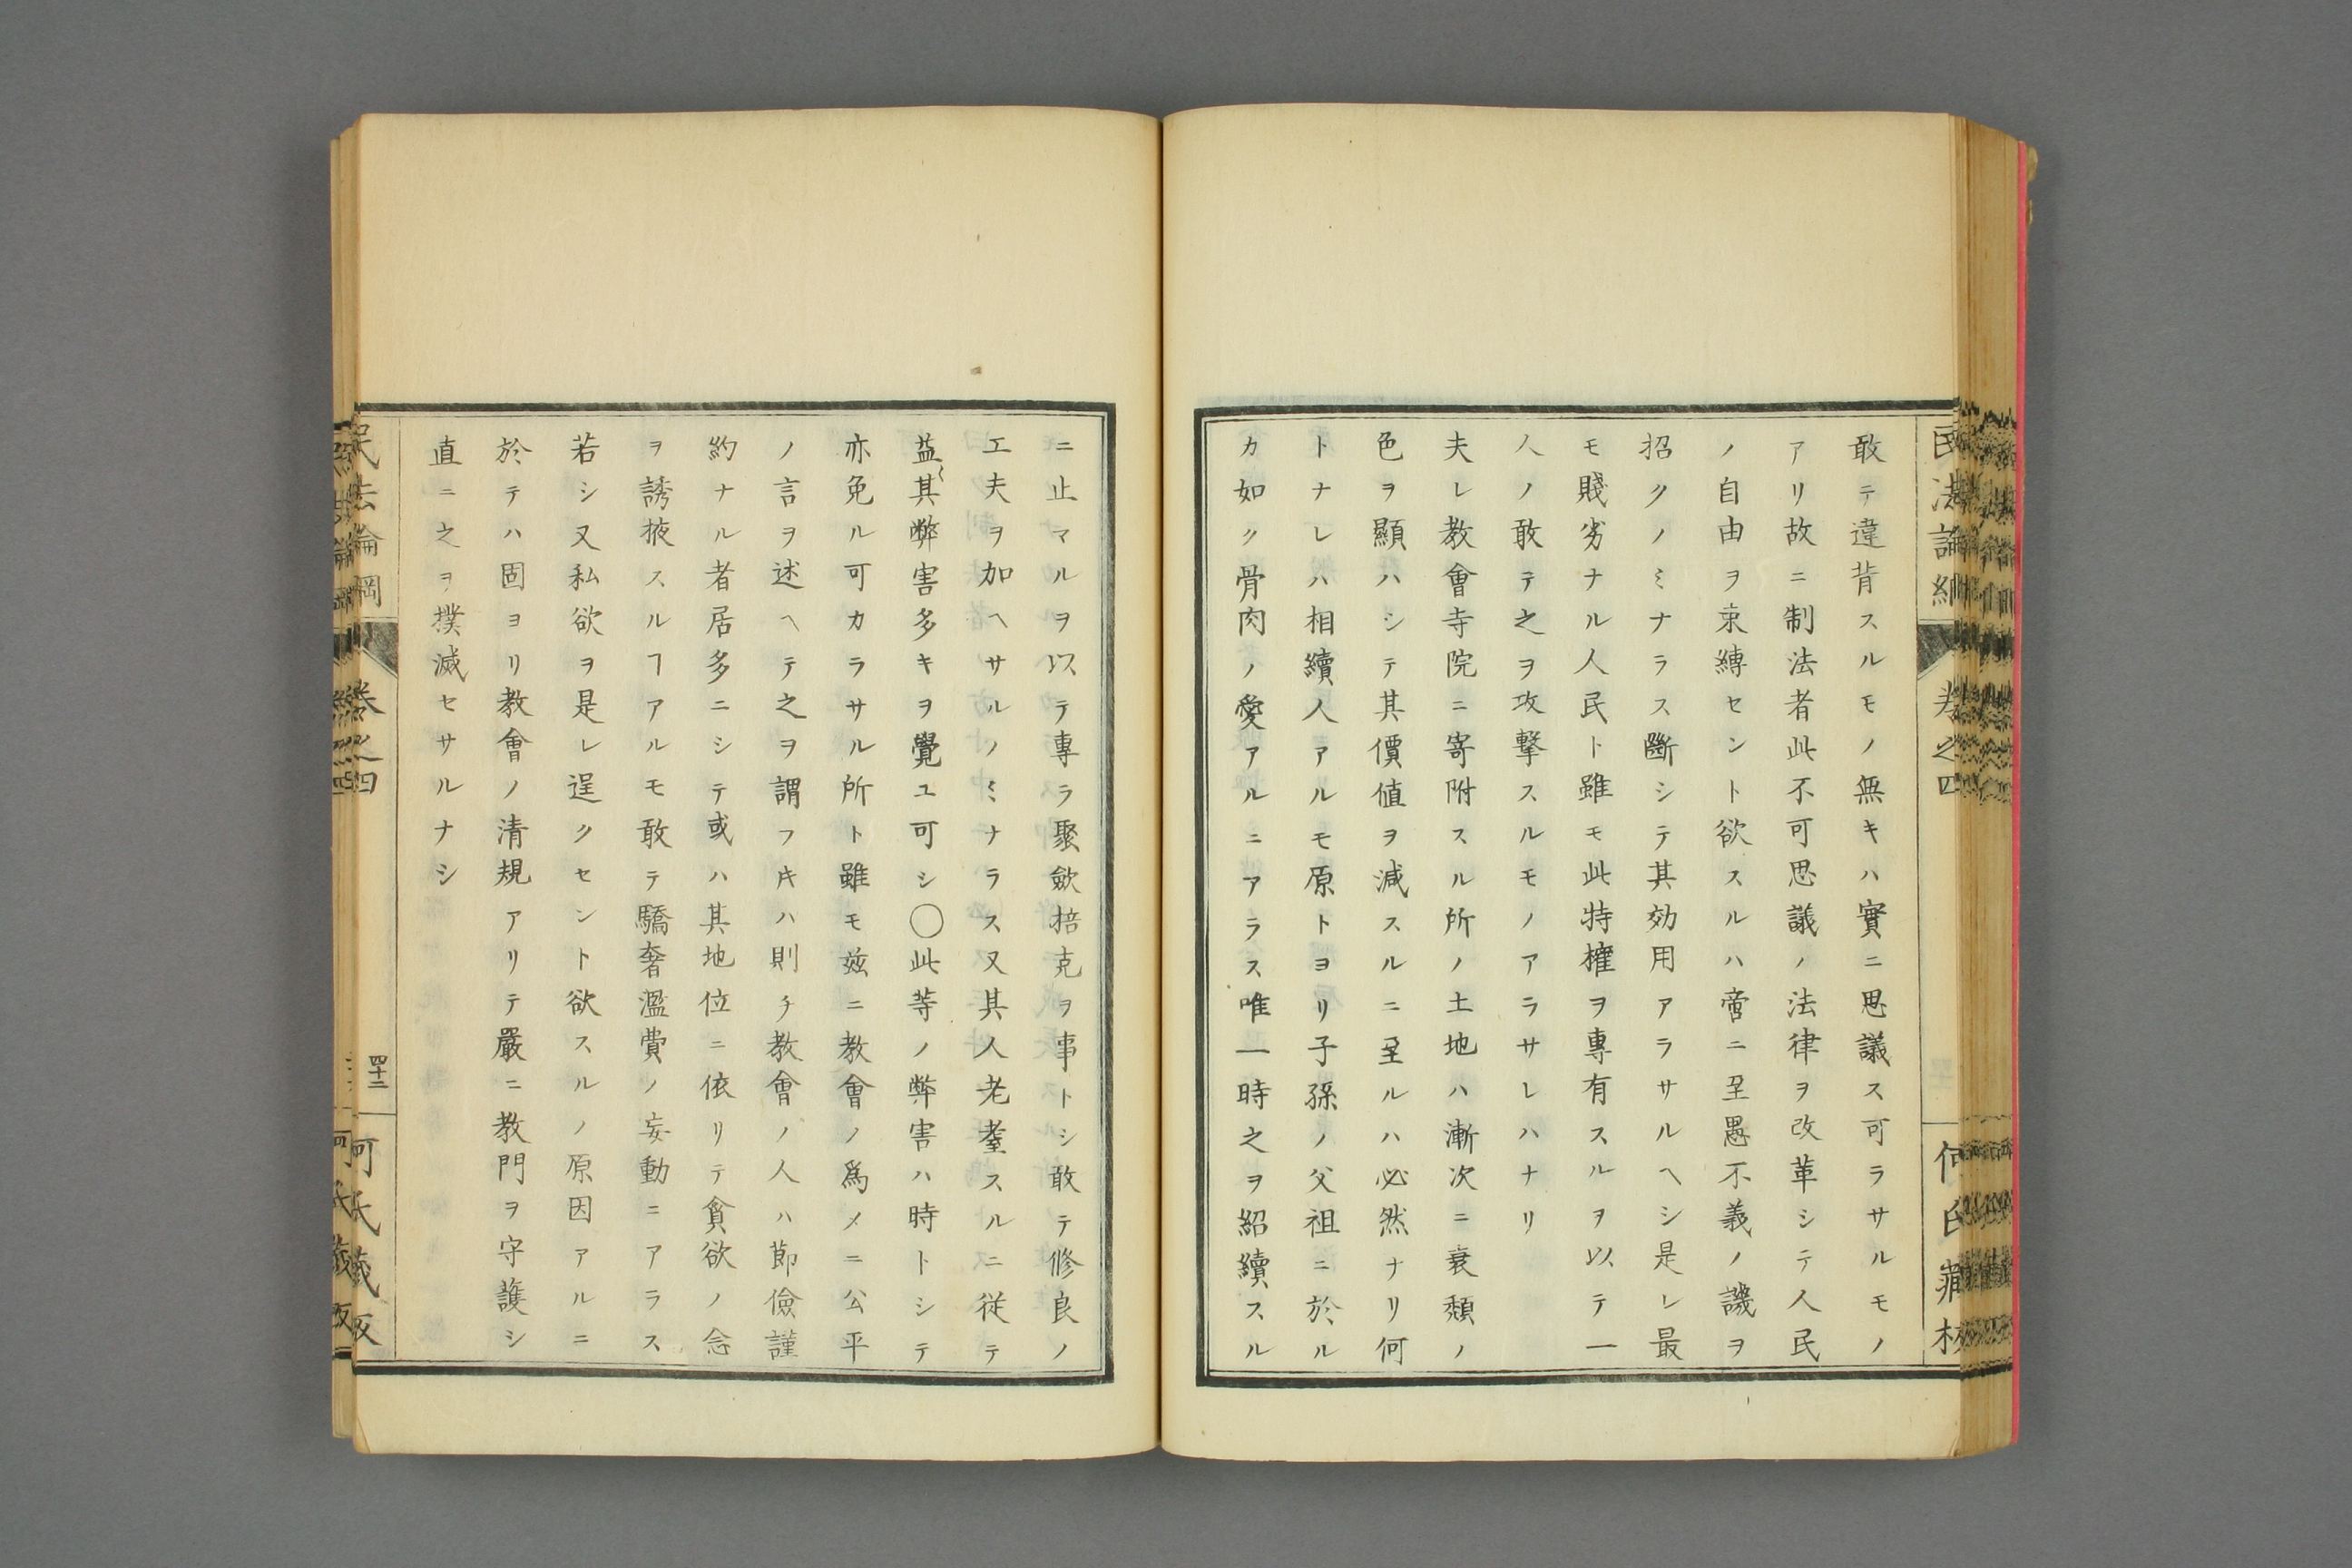 敢テ違背スルモノ無キハ實ニ思議ス可ラサルモノ
アリ故ニ制法者此不可思議ノ法律ヲ改革シテ人民
ノ自由ヲ束縛セント欲スルハ啻ニ至愚不義ノ譏ヲ
招クノミナラス斷シテ其効用アラサルヘシ是レ最
モ賤劣ナル人民ト雖モ此特權ヲ專有スルヲ以テ一
人ノ敢テ之ヲ攻撃スルモノアラサレハナリ
夫レ教會寺院ニ寄附スル所ノ土地ハ漸次ニ衰頽ノ
色ヲ顯ハシテ其價値ヲ減スルニ至ルハ必然ナリ何
トナレハ相續人アルモ原トヨリ子孫ノ父祖ニ於ル
カ如ク骨肉ノ愛アルニアラス唯一時之ヲ紹續スル
ニ止マルヲ以テ專ラ聚歛掊克ヲ事トシ敢テ修良ノ
工夫ヲ加ヘサルノミナラス又其人老耋スルニ從テ
益〻其弊害多キヲ覺ユ可シ〇此等ノ弊害ハ時トシテ
亦免ル可カラサル所ト雖モ玆ニ教會ノ爲メニ公平
ノ言ヲ述ヘテ之ヲ謂フ𪜈ハ則チ教會ノ人ハ節儉謹
約ナル者居多ニシテ或ハ其地位ニ依リテ貪欲ノ念
ヲ誘掖スルヿアルモ敢テ驕奢濫費ノ妄動ニアラス
若シ又私欲ヲ是レ逞クセント欲スルノ原因アルニ
於テハ固ヨリ教會ノ清規アリテ嚴ニ教門ヲ守護シ
直ニ之ヲ撲滅セサルナシ
民法論綱
卷之四
四十二
何氏藏版